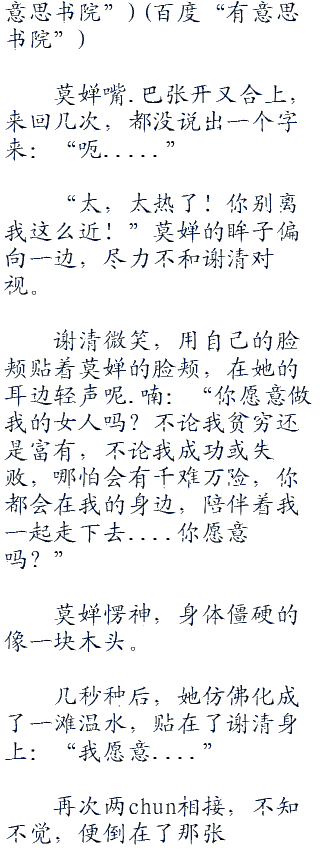 意思书院”)(百度“有意思
书院”)
莫婵嘴.巴张开又合上，
来回几次，都没说出一个字
来：“呃.....”
“太，太热了！你别离
我这么近！”莫婵的眸子偏
向一边，尽力不和谢清对
视。
谢清微笑，用自己的脸
颊贴着莫婵的脸颊，在她的
耳边轻声呢.喃：“你愿意做
我的女人吗？不论我贫穷还
是富有，不论我成功或失
败，哪怕会有千难万险，你
都会在我的身边，陪伴着我
一起走下去....你愿意
吗？”
莫婵愣神，身体僵硬的
像一块木头。
几秒种后，她仿佛化成
了一滩温水，贴在了谢清身
上：“我愿意....”
再次两chun相接，不知
不觉，便倒在了那张